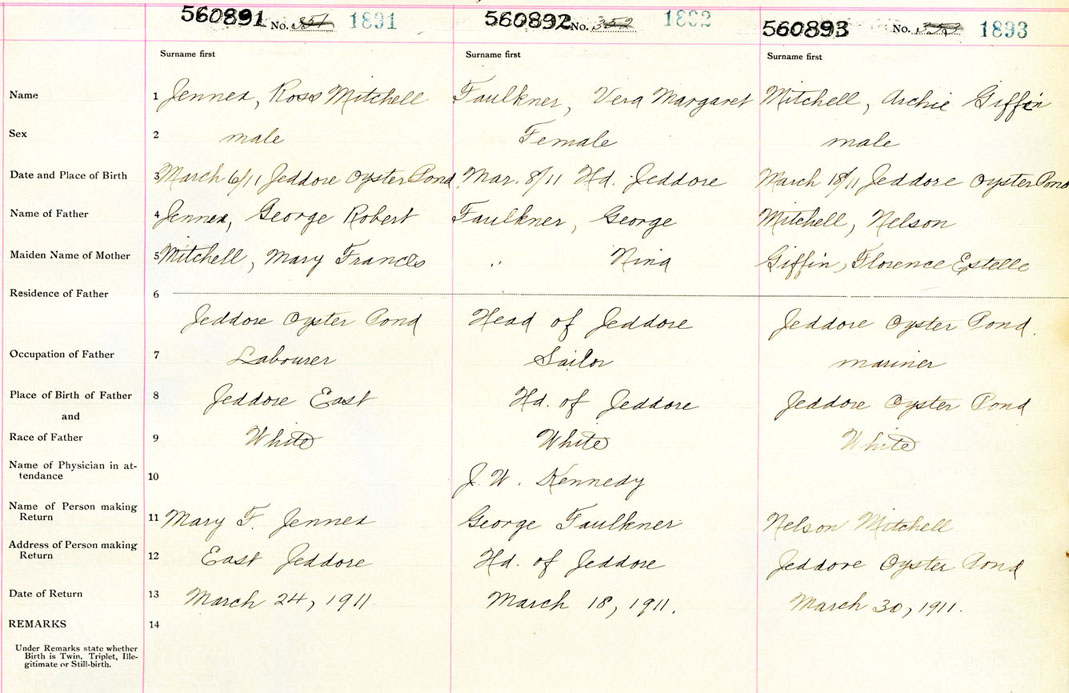 560891 No. 351 1891 560892 No. 352 1892 560893 No. 353 1893
Surname first Surname first Surname first
Name 1 Jennex, Ross Mitchell Faulkner, Vera Margaret Mitchell, Archie Giffin
Sex 2 male Female male
Date and Place of Birth 3 March 6/11 Jeddore Oyster Pond Mar. 8/11 Hd. Jeddore March 18/11 Jeddore Oyster Pond
Name of Father 4 Jennex, George Robert Faulkner, George Mitchell, Nelson
Maiden Name of Mother 5 Mitchell, Mary Frances " Nina Giffin, Florence Estelle
Residence of Father 6
Jeddore Oyster Pond Head of Jeddore Jeddore Oyster Pond.
Occupation of Father 7 Labourer Sailor mariner
Place of Birth of Father 8 Jeddore East Hd. of Jeddore Jeddore Oyster Pond
and
Race of Father 9 White White White
Name of Physician in at-
tendance 10 J. W. Kennedy
Name of Person making
Return 11 Mary F. Jennex George Faulkner Nelson Mitchell
Address of Person making
Return 12 East Jeddore Hd. of Jeddore Jeddore Oyster Pond
Date of Return 13 March 24, 1911. March 18, 1911. March 30, 1911.
REMARKS 14
Under Remarks state whether
Birth is Twin, Triplet, Ille-
gitimate or Still-birth.